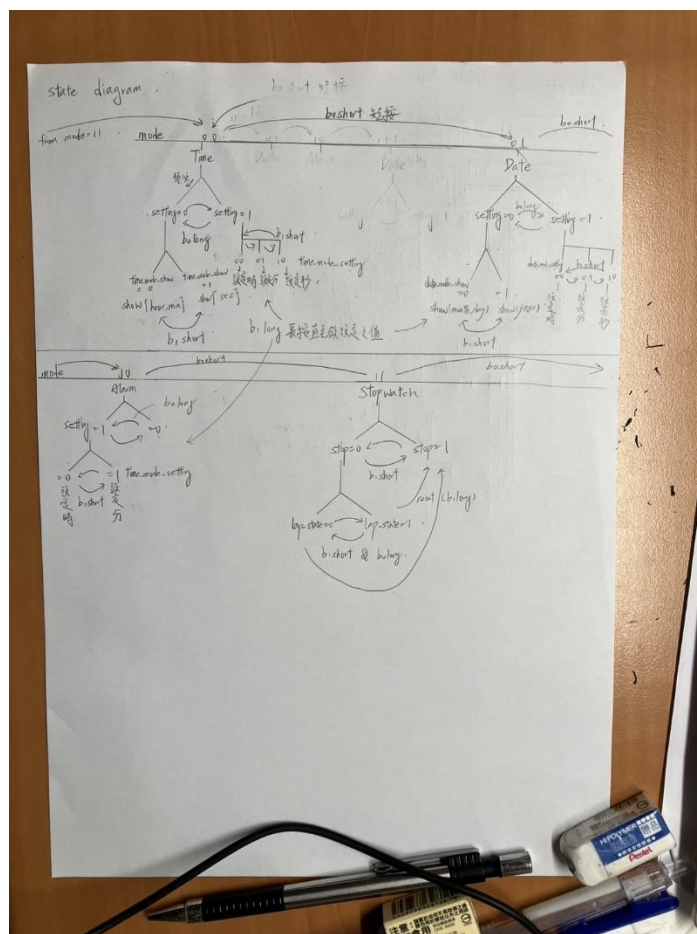 state diagram.
b0 short 短按
b0 short 短按
b0 short.
from mode=11.
mode
00
01
Time
Date
Date
setting=0
setting=1
b0 long
b1 short
00 01 10 time_mode_setting
設定時 設定分 設定秒.
time_mode_show =0
time_mode_show =1
show{hour,min}
show{sec}
b1 short
setting=0
b0 long
setting=1.
date_mode_setting
b1 short
00 01 10
設定時
設定分
設定秒
date_mode_show =0
=1
show(month/day)
show(year)
b1 short
b1 long 長按直至做設定之值
mode
10
b0 short
11
b0 short
Alarm
b0 long
setting=1
=0.
=0
=1 Time_mode_setting
設定時
b1 short
設定分
Stopwatch
stop=0
stop=1
b1 short
reset (b1 long)
lap_state=0
lap_state=1.
b1 short 及 b0 long.
HI-POLYMER
Pentel
注意: